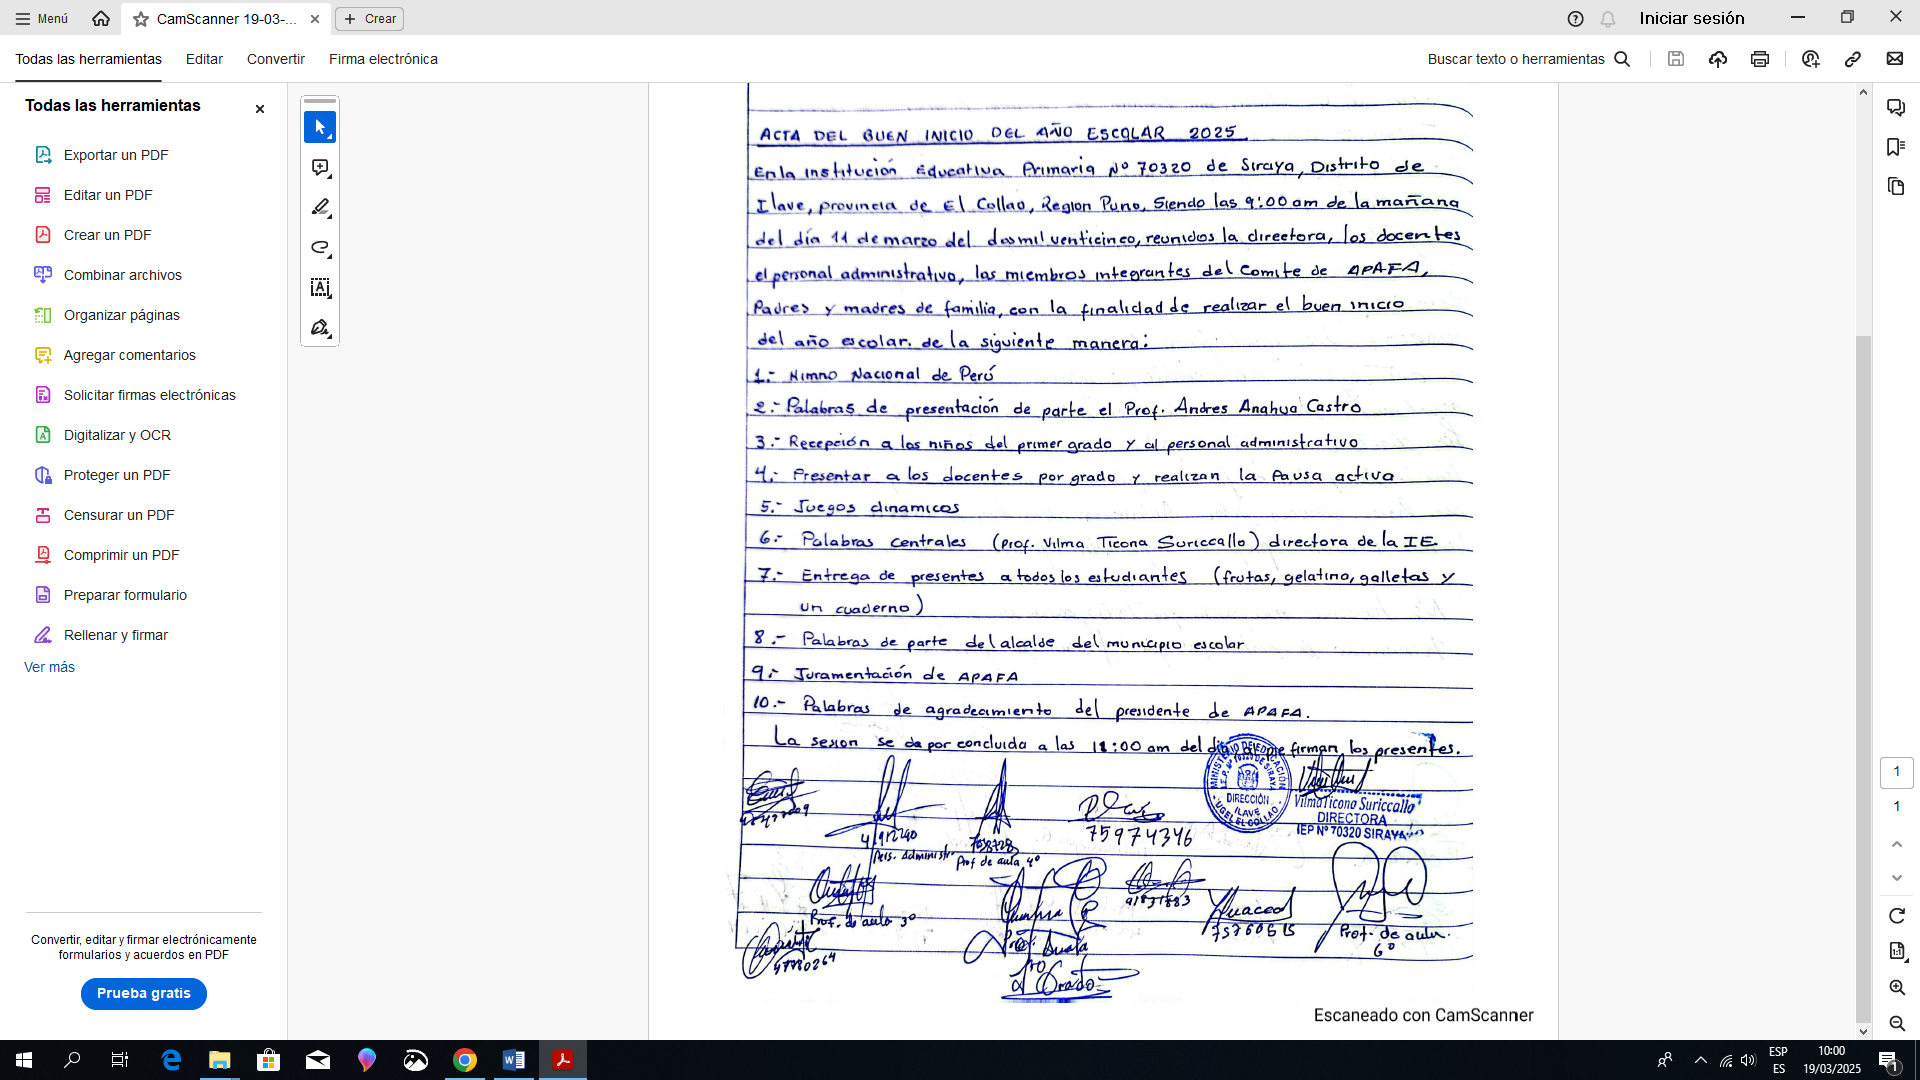 Menú
CamScanner 19-03-...
Crear
Iniciar sesión
Todas las herramientas
Editar
Convertir
Firma electrónica
Buscar texto o herramientas
Todas las herramientas
Exportar un PDF
Editar un PDF
Crear un PDF
Combinar archivos
Organizar páginas
Agregar comentarios
Solicitar firmas electrónicas
Digitalizar y OCR
Proteger un PDF
Censurar un PDF
Comprimir un PDF
Preparar formulario
Rellenar y firmar
Ver más
Convertir, editar y firmar electrónicamente
formularios y acuerdos en PDF
Prueba gratis
ACTA DEL BUEN INICIO DEL AÑO ESCOLAR 2025
En la institución Educativa Primaria Nº 70320 de Siraya, Distrito de
Ilave, provincia de El Collao, Region Puno, Siendo las 9:00 am de la mañana
del día 11 de marzo del dosmil venticinco, reunidos la directora, los docentes
el personal administrativo, los miembros integrantes del Comite de APAFA,
Padres y madres de familia, con la finalidad de realizar el buen inicio
del año escolar. de la siguiente manera:
1.- Himno Nacional de Perú
2.- Palabras de presentación de parte el Prof. Andres Anahua Castro
3.- Recepción a los niños del primer grado y al personal administrativo
4.- Presentar a los docentes por grado y realizan la Pausa activa
5.- Juegos dinamicos
6.- Palabras centrales (Prof. Vilma Ticona Suriccallo) directora de la IE
7.- Entrega de presentes a todos los estudiantes (frutas, gelatina, galletas y
un cuaderno)
8.- Palabras de parte del alcalde del municipio escolar
9.- Juramentación de APAFA
10.- Palabras de agradecimiento del presidente de APAFA.
La sesion se da por concluida a las 11:00 am del día firman los presentes.
MINISTERIO DE EDUCACIÓN
I.E.P. Nº 70320 DE SIRAYA
DIRECCIÓN
ILAVE
UGEL EL COLLAO
Vilma Ticona Suriccallo
DIRECTORA
IEP Nº 70320 SIRAYA
75974346
Pers. Administr.
Prof de aula 4º
Prof. de aula 3º
Prof. de aula
6º
47780264
Grado
Escaneado con CamScanner
1
1
ESP
ES
10:00
19/03/2025
1